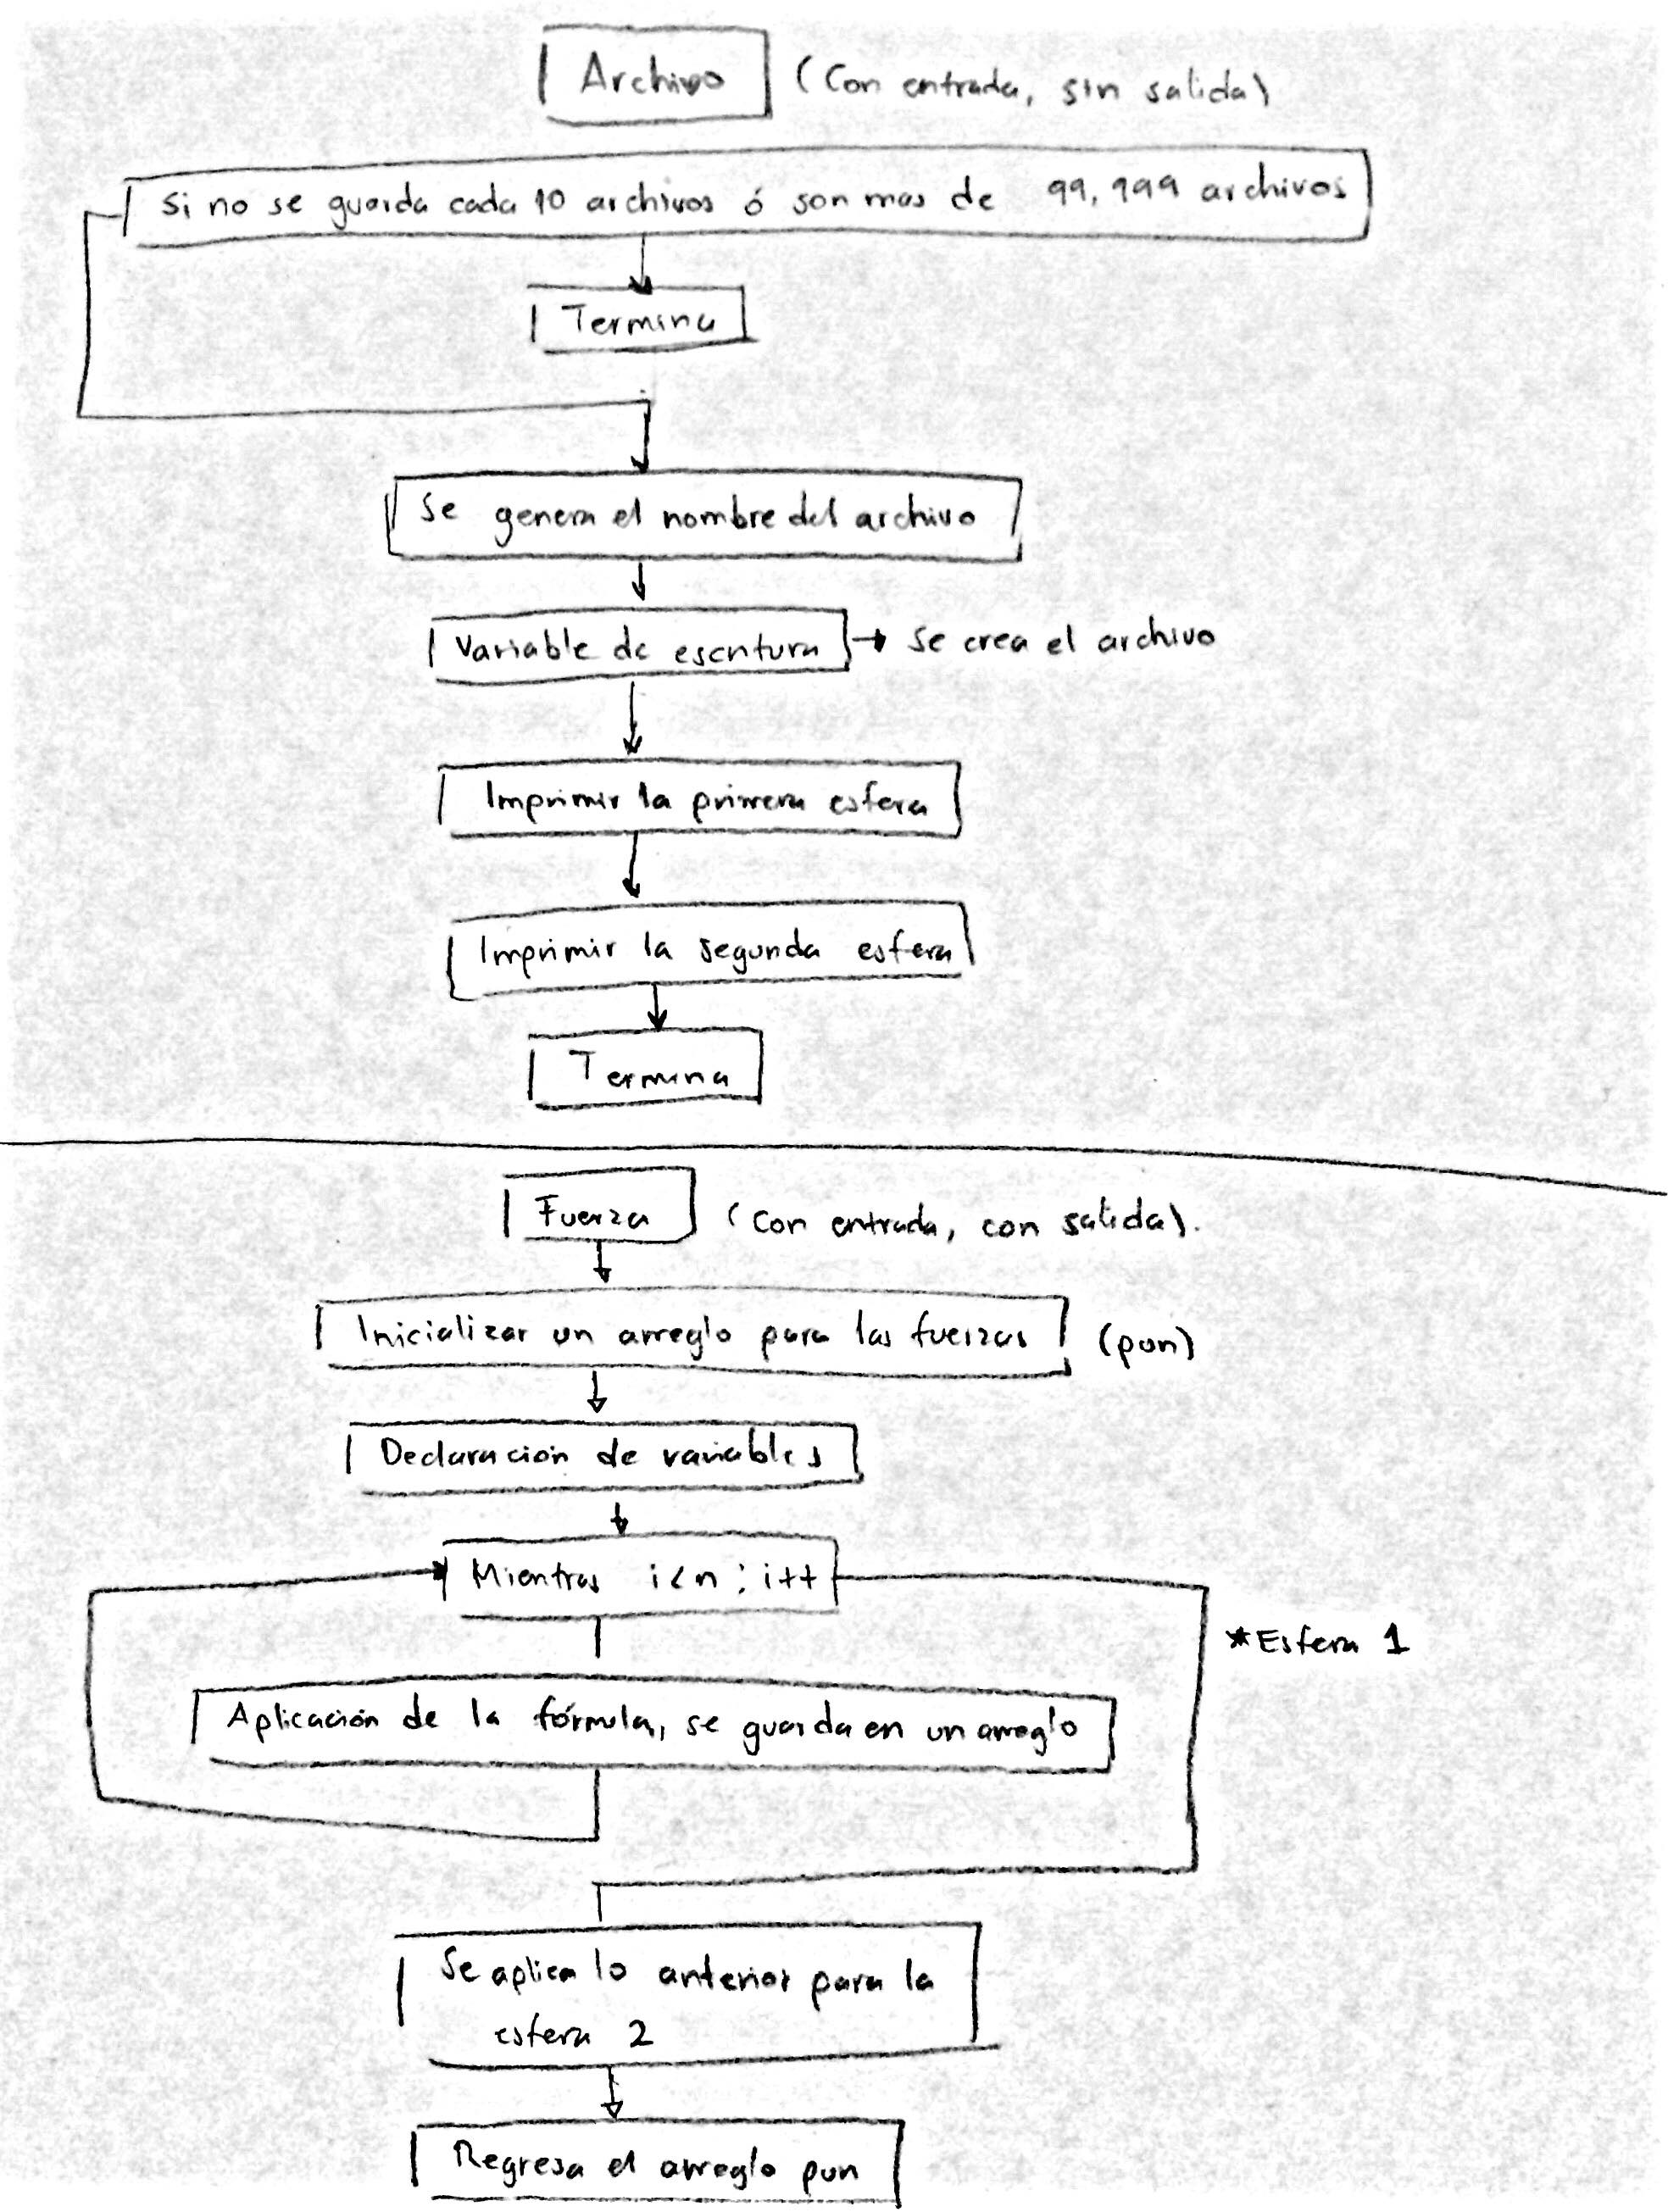 Archivo (Con entrada, sin salida)
Si no se guarda cada 10 archivos ó son mas de 99,999 archivos
Termina
Se genera el nombre del archivo
Variable de escritura → Se crea el archivo
Imprimir la primera esfera
Imprimir la segunda esfera
Termina
Fuerza (Con entrada, con salida).
Inicializar un arreglo para las fuerzas (pun)
Declaración de variables
Mientras i<n; i++
*Esfera 1
Aplicación de la fórmula, se guarda en un arreglo
Se aplica lo anterior para la
esfera 2
Regresa el arreglo pun